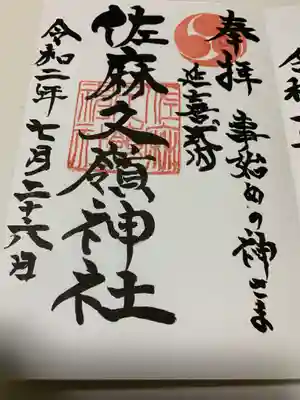 奉拝 事始めの神さま
延喜式内
佐麻久嶺神社
令和二年七月二十八日